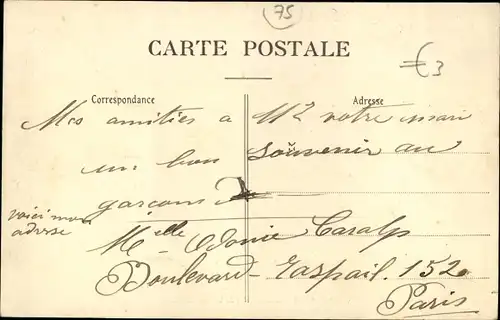 75
CARTE POSTALE
€3
Correspondance
Adresse
Mes amitiés a Mr votre mari
un bon souvenir au
garçons
voici mon
adresse
Melle Odonie Caralp
Boulevard Raspail. 152.
Paris